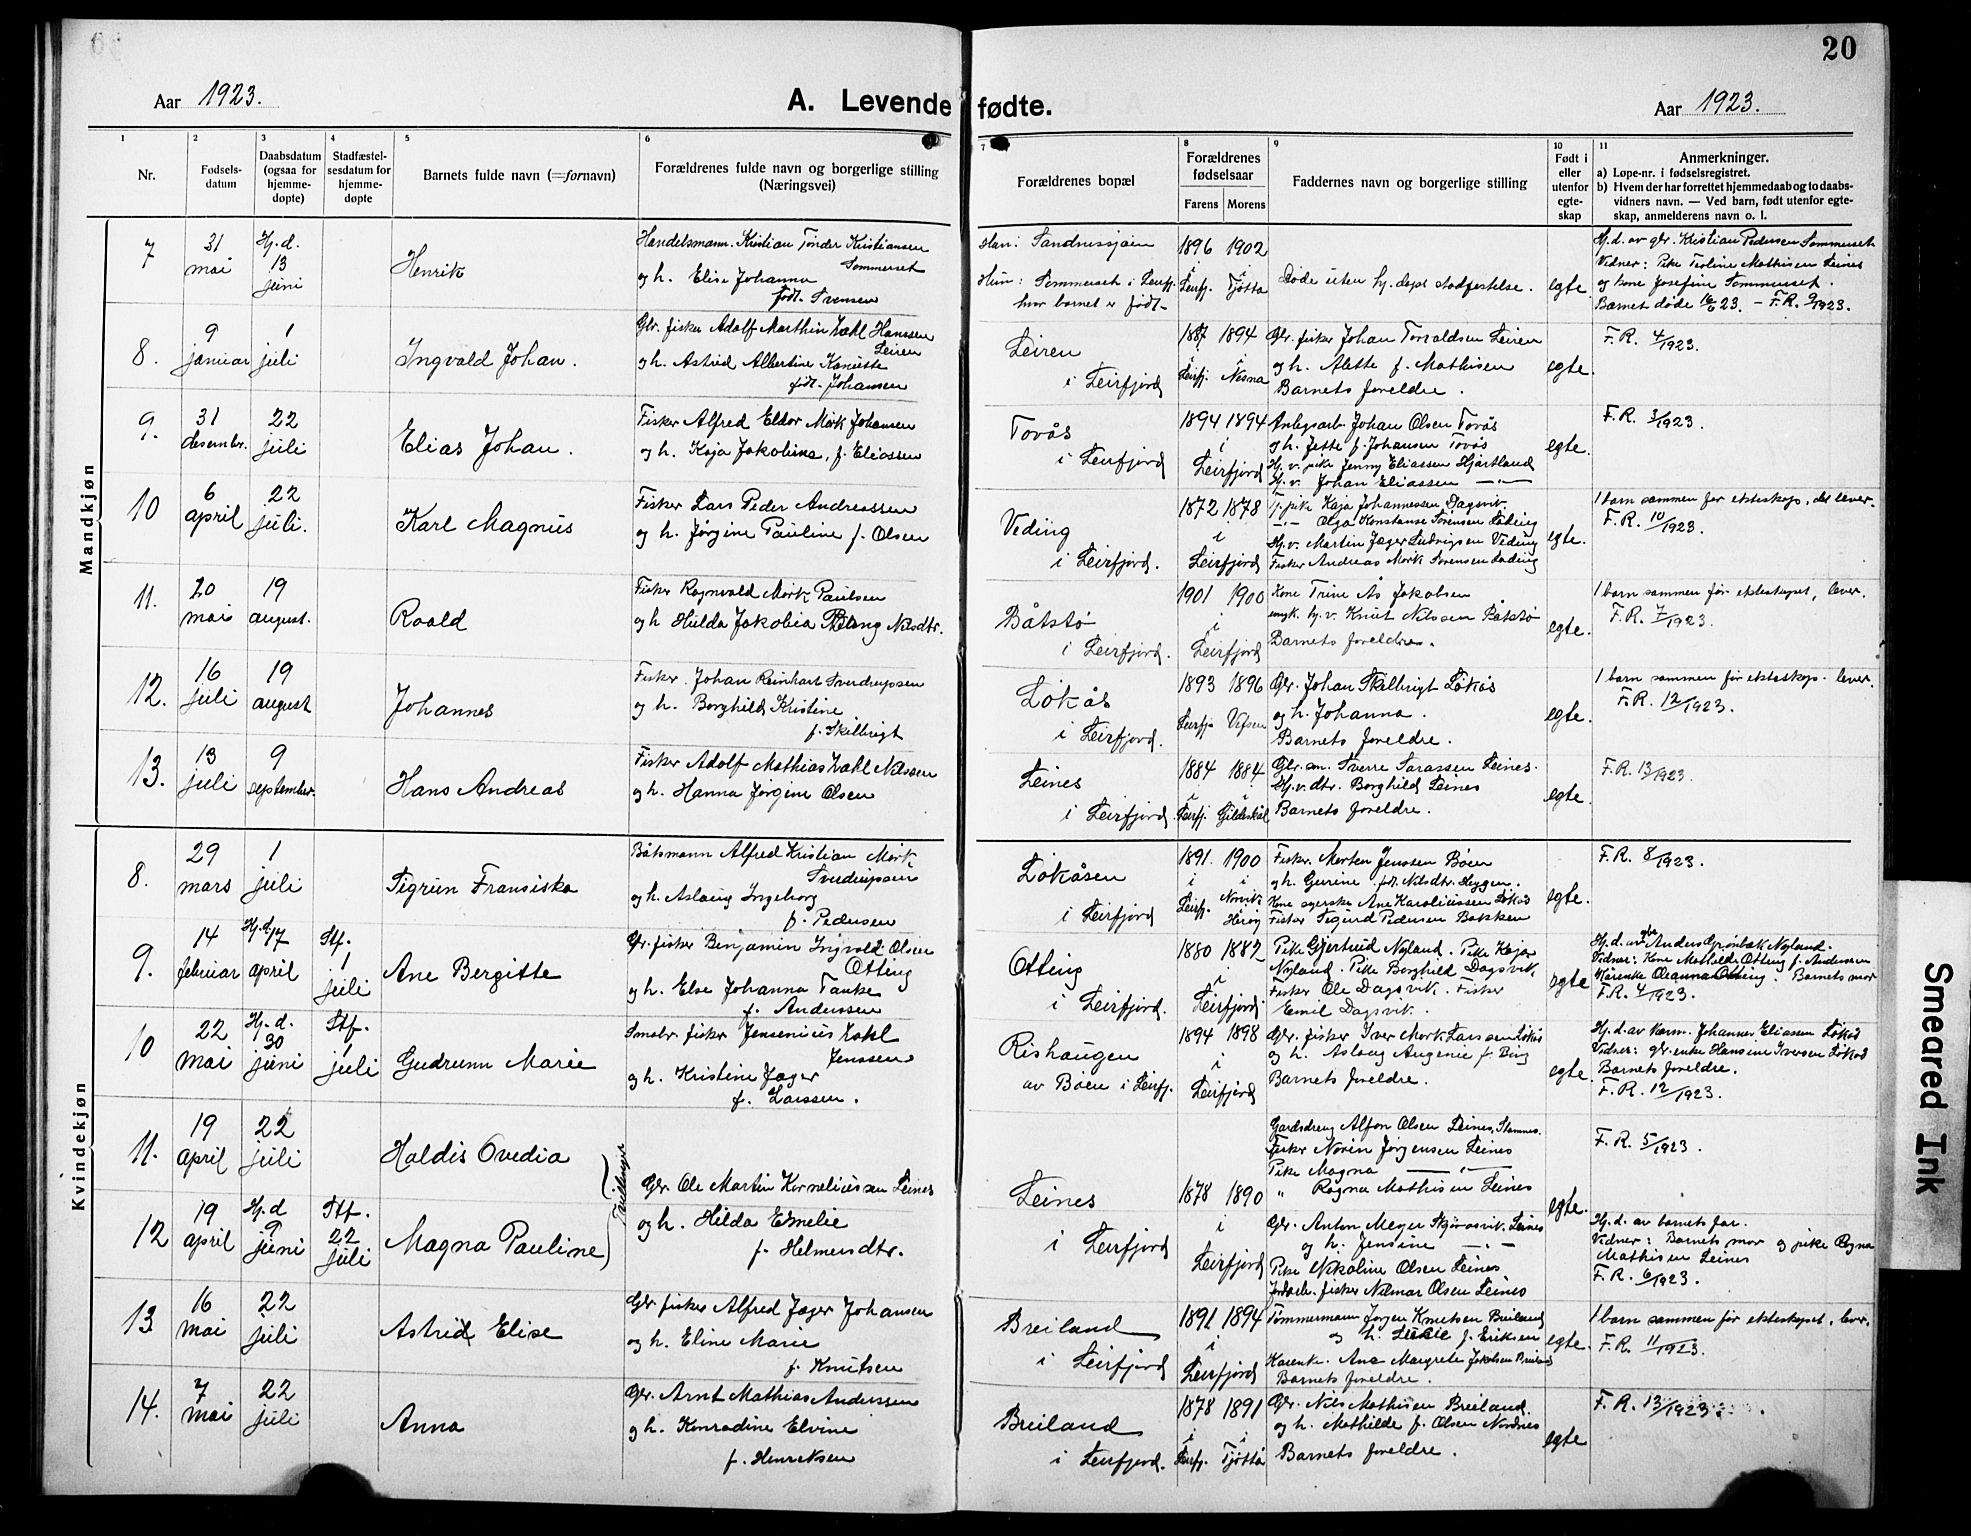 20
Aar 1923.
A. Levende fødte.
Aar 1923.
1
Nr.
2
Fødsels-
datum
3
Daabsdatum
(ogsaa for
hjemme-
døpte)
4
Stadfæstel-
sesdatum for
hjemme-
døpte
5
Barnets fulde navn (=fornavn)
6
Forældrenes fulde navn og borgerlige stilling
(Næringsvei)
7
Forældrenes bopæl
8
Forældrenes
fødselsaar
Farens Morens
9
Faddernes navn og borgerlige stilling
10
Født i
eller
utenfor
egte-
skap
11
Anmerkninger.
a) Løpe-nr. i fødselsregistret.
b) Hvem der har forrettet hjemmedaab og to daabs-
vidners navn. — Ved barn, født utenfor egte-
skap, anmelderens navn o. l.
Mandkjøn
7
31
mai
Hj.d.
13
juni
Henrik
Handelsmann Kristian Tønder Kristiansen
Sommerset
og h. Elise Johanna
født Svensen
Han: Sandnessjøen
Hun: Sommerset i Leirfj.
hvor barnet er født
1896 1902
i i
Leirfj. Tjøtta
Døde uten hj. døpt stadfestelse.
egte
Hj.d. av gbr. Kristian Pedersen Sommerset
Vidner: Pike Teoline Mathisen Leines
og kone Josefine Sommerset.
Barnet døde 16/6 23. – F.R. 9/1923.
8.
9
januar
1
juli
Ingvald Johan.
Gbr. fisker Adolf Marthin Zakl Hanssen
Leiren
og h. Astrid Albertine Kanutte
født Johansen
Leiren
i Leirfjord
1887 1894
i i
Leirfj. Nesna
Gbr. fisker Johan Torvaldsen Leiren
og h. Alette f. Mathisen
Barnets foreldre.
egte.
F.R. 4/1923.
9.
31
desembr.
22
juli
Elias Johan.
Fisker Alfred Eldor Mørk Johansen
og h. Kaja Jakobine, f. Eliassen
Tovås
i Leirfjord
1894 1894
i
Leirfjord
Anlegsarb. Johan Olsen Tovås
og h. Jette f. Johansen Tovås
Hj.v. pike Jenny Eliassen Hjartland
Hj.v. Johan Eliassen —"—
egte.
F.R. 3/1923.
10
6
april
22
juli.
Karl Magnus
Fisker Lars Peder Andreassen
og h. Jørgine Pauline f. Olsen
Veding
i Leirfjord.
1872 1878
i
Leirfjord
Tj. pike Kaja Johannessen Dagsvik.
—"— Olga Konstanse Sørensen Leding
Hj.v. Martin Jæger Ludvigsen Veding
Fisker Andreas Mørk Sørensen Leding
egte.
1 barn sammen før ekteskap, det lever.
F.R. 10/1923.
11.
20
mai
19
august.
Roald
Fisker Ragnvald Mørk Paulsen
og h Hilda Jakobia Nilsdtr.
Båtstø
i Leirfjord.
1901 1900
i
Leirfjord
Kone Trine Ås Jakobsen
ungk. hj.v. Knut Nilssen Båtstø
Barnets foreldre.
egte.
1 barn sammen før ekteskapet, lever.
F.R. 7/1923.
12.
16
juli
19
august
Johannes
Fisker Johan Reinhart Sverdrupsen
og h. Borghild Kristine
f. Skilbrigt
Løkås
i Leirfjord.
1893 1896
Leirfj. Vefsen
Gbr. Johan Skilbrigt Løkås
og h. Johanna.
Barnets foreldre.
egte.
1 barn sammen før ekteskap. lever.
F.R. 12/1923.
13.
13
juli
9
september.
Hans Andreas
Fisker Adolf Mathias Zakl Nilssen
og h. Hanna Jørgine Olsen
Leines
i Leirfjord.
1884 1884
i i
Leirfj. Gildeskål
Gbr. søn. Sverre Larassen Leines.
Hj.v. dtr. Borghild Leines
Barnets foreldre.
egte.
F.R. 13/1923.
Kvindekjøn
8.
29
mars
1
juli
Sigrun Fransiska
Båtsmann Alfred Kristian Mørk
Sverdrupsen
og h. Aslaug Ingeborg
f. Pedersen
Løkåsen
i Leirfjord
1891. 1900
i i
Leirfj. Norvik
Herøy
Fisker Morten Jenssen Bøen
og h. Gurine født Nilsdtr. Heggen.
Kone syerske Ane Karoliussen Løkås
Fisker Sigurd Pedersen Bakken
egte.
F.R. 8/1923.
9.
14
februar
Hj.d. 17
april
Stf.
1
juli
Ane Bergitte
Gbr. fisker Benjamin Ingvald Olsen
Otting
og h. Else Johanna Tanke
f. Anderssen
Otting
i Leirfjord.
1880 1882
i
Leirfjord
Pike Gjertrud Nyland. Pike Kaja
Nyland. Pike Borghild Dagsvik.
Fisker Ole Dagsvik. Fisker
Emil Dagsvik.
egte
Hj.d. av gbr. Anders Grønbæk Nyland.
Vidner: Kone Mathilde Otting f. Anderssen
Kårenke Oleanna Otting. Barnets mor
F.R. 4/1923.
10
22
mai
Hj.d.
30
juni
Stf.
1
juli
Gudrunn Marie
Småbr. fisker Jensenius Zakl
Jenssen
og h. Kristine Jæger
f. Larssen.
Rishaugen
av Bøen i Leirfj.
1894 1898
i
Leirfjord
Gbr. fisker Iver Mørk Larssen Løkås
og h. Aslaug Augenie f. Berg
Barnets foreldre.
egte.
Hj.d. av Kårm. Johannes Eliassen Løkås
Vidner: gbr. enke Hansine Iversen Løkås
Barnets foreldre.
F.R. 12/1923.
11.
19
april
22
juli
Haldis Ovedia
Tvillinger
Gbr. Ole Martin Korneliussen Leines
og h. Hilda Emelie
f. Helmersdtr.
Leines
i Leirfjord
1878 1890
i
Leirfjord
Gårdsdreng Alfon Olsen Leines, Stamnes.
Fisker Norin Jørgensen Leines
Pike Magna —"—
" Ragna Mathisen Leines
egte.
F.R. 5/1923.
12
19
april
Hj.d
9
juni
Stf.
22
juli
Magna Pauline
Gbr. Anton Meyer Leines
og h. Jensine —"—
Pike Nikoline Olsen Leines
fisker Nilmar Olsen Leines
Hj.d. av barnets far.
Vidner: Barnets mor og pike Ragna
Mathisen Leines
F.R. 6/1923.
13
16
mai
22
juli
Astrid Elise
Gbr. fisker Alfred Jæger Johansen
og h. Eline Marie
f. Knutsen
Breiland
i Leirfjord
1891 1894
i
Leirfjord
Tømmermann Jørgen Knutsen Breiland
og h. f. Eriksen
Kårenke. Ane Margrete Jakobsen Breiland
Barnets foreldre.
egte.
1 barn sammen før ekteskapet, lever.
F.R. 11/1923.
14.
7
mai
22
juli
Anna
Gbr. Arnt Mathias Anderssen
og h. Konradine Elvine
f. Henriksen
Breiland
i Leirfjord.
1878 1891
i i
Leirfj. Tjøtta
Gbr. Nils Mathisen Breiland.
og h. Mathilde f. Olsen Nordnes
Barnets foreldre.
egte
F.R. 13/1923.
Smeared Ink